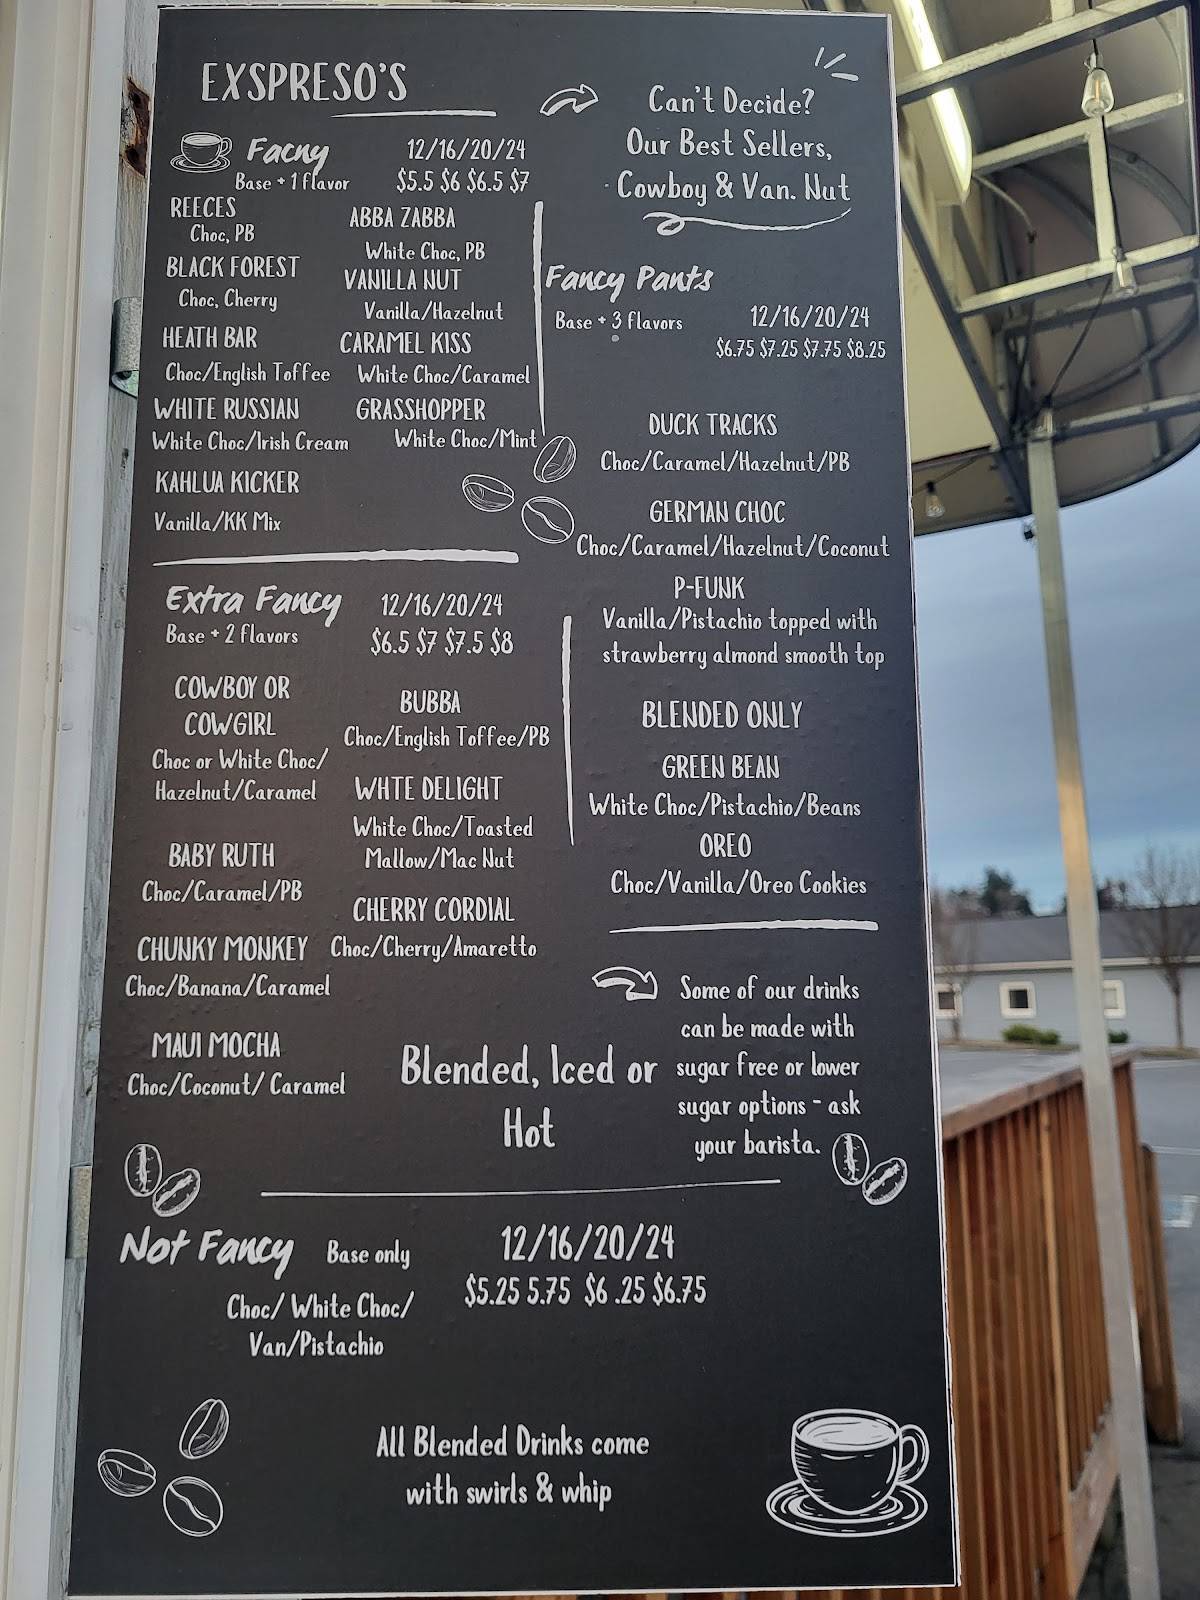 EXSPRESO'S
Facny 12/16/20/24
Base + 1 flavor $5.5 $6 $6.5 $7
REECES
Choc, PB
BLACK FOREST
Choc, Cherry
HEATH BAR
Choc/English Toffee
WHITE RUSSIAN
White Choc/Irish Cream
KAHLUA KICKER
Vanilla/KK Mix
ABBA ZABBA
White Choc, PB
VANILLA NUT
Vanilla/Hazelnut
CARAMEL KISS
White Choc/Caramel
GRASSHOPPER
White Choc/Mint
Extra Fancy 12/16/20/24
Base + 2 flavors $6.5 $7 $7.5 $8
COWBOY OR
COWGIRL
Choc or White Choc/
Hazelnut/Caramel
BABY RUTH
Choc/Caramel/PB
CHUNKY MONKEY
Choc/Banana/Caramel
MAUI MOCHA
Choc/Coconut/ Caramel
BUBBA
Choc/English Toffee/PB
WHTE DELIGHT
White Choc/Toasted
Mallow/Mac Nut
CHERRY CORDIAL
Choc/Cherry/Amaretto
Can't Decide?
Our Best Sellers,
Cowboy & Van. Nut
Fancy Pants
Base + 3 flavors 12/16/20/24
$6.75 $7.25 $7.75 $8.25
DUCK TRACKS
Choc/Caramel/Hazelnut/PB
GERMAN CHOC
Choc/Caramel/Hazelnut/Coconut
P-FUNK
Vanilla/Pistachio topped with
strawberry almond smooth top
BLENDED ONLY
GREEN BEAN
White Choc/Pistachio/Beans
OREO
Choc/Vanilla/Oreo Cookies
Some of our drinks
can be made with
sugar free or lower
sugar options - ask
your barista.
Blended, Iced or
Hot
Not Fancy Base only 12/16/20/24
$5.25 5.75 $6 .25 $6.75
Choc/ White Choc/
Van/Pistachio
All Blended Drinks come
with swirls & whip